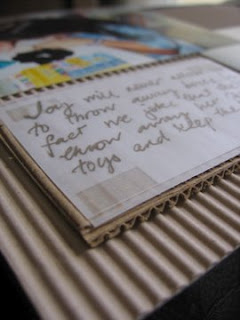 Jay will never
to throw away boxes
fact we joke that
throw away her
toys and keep the